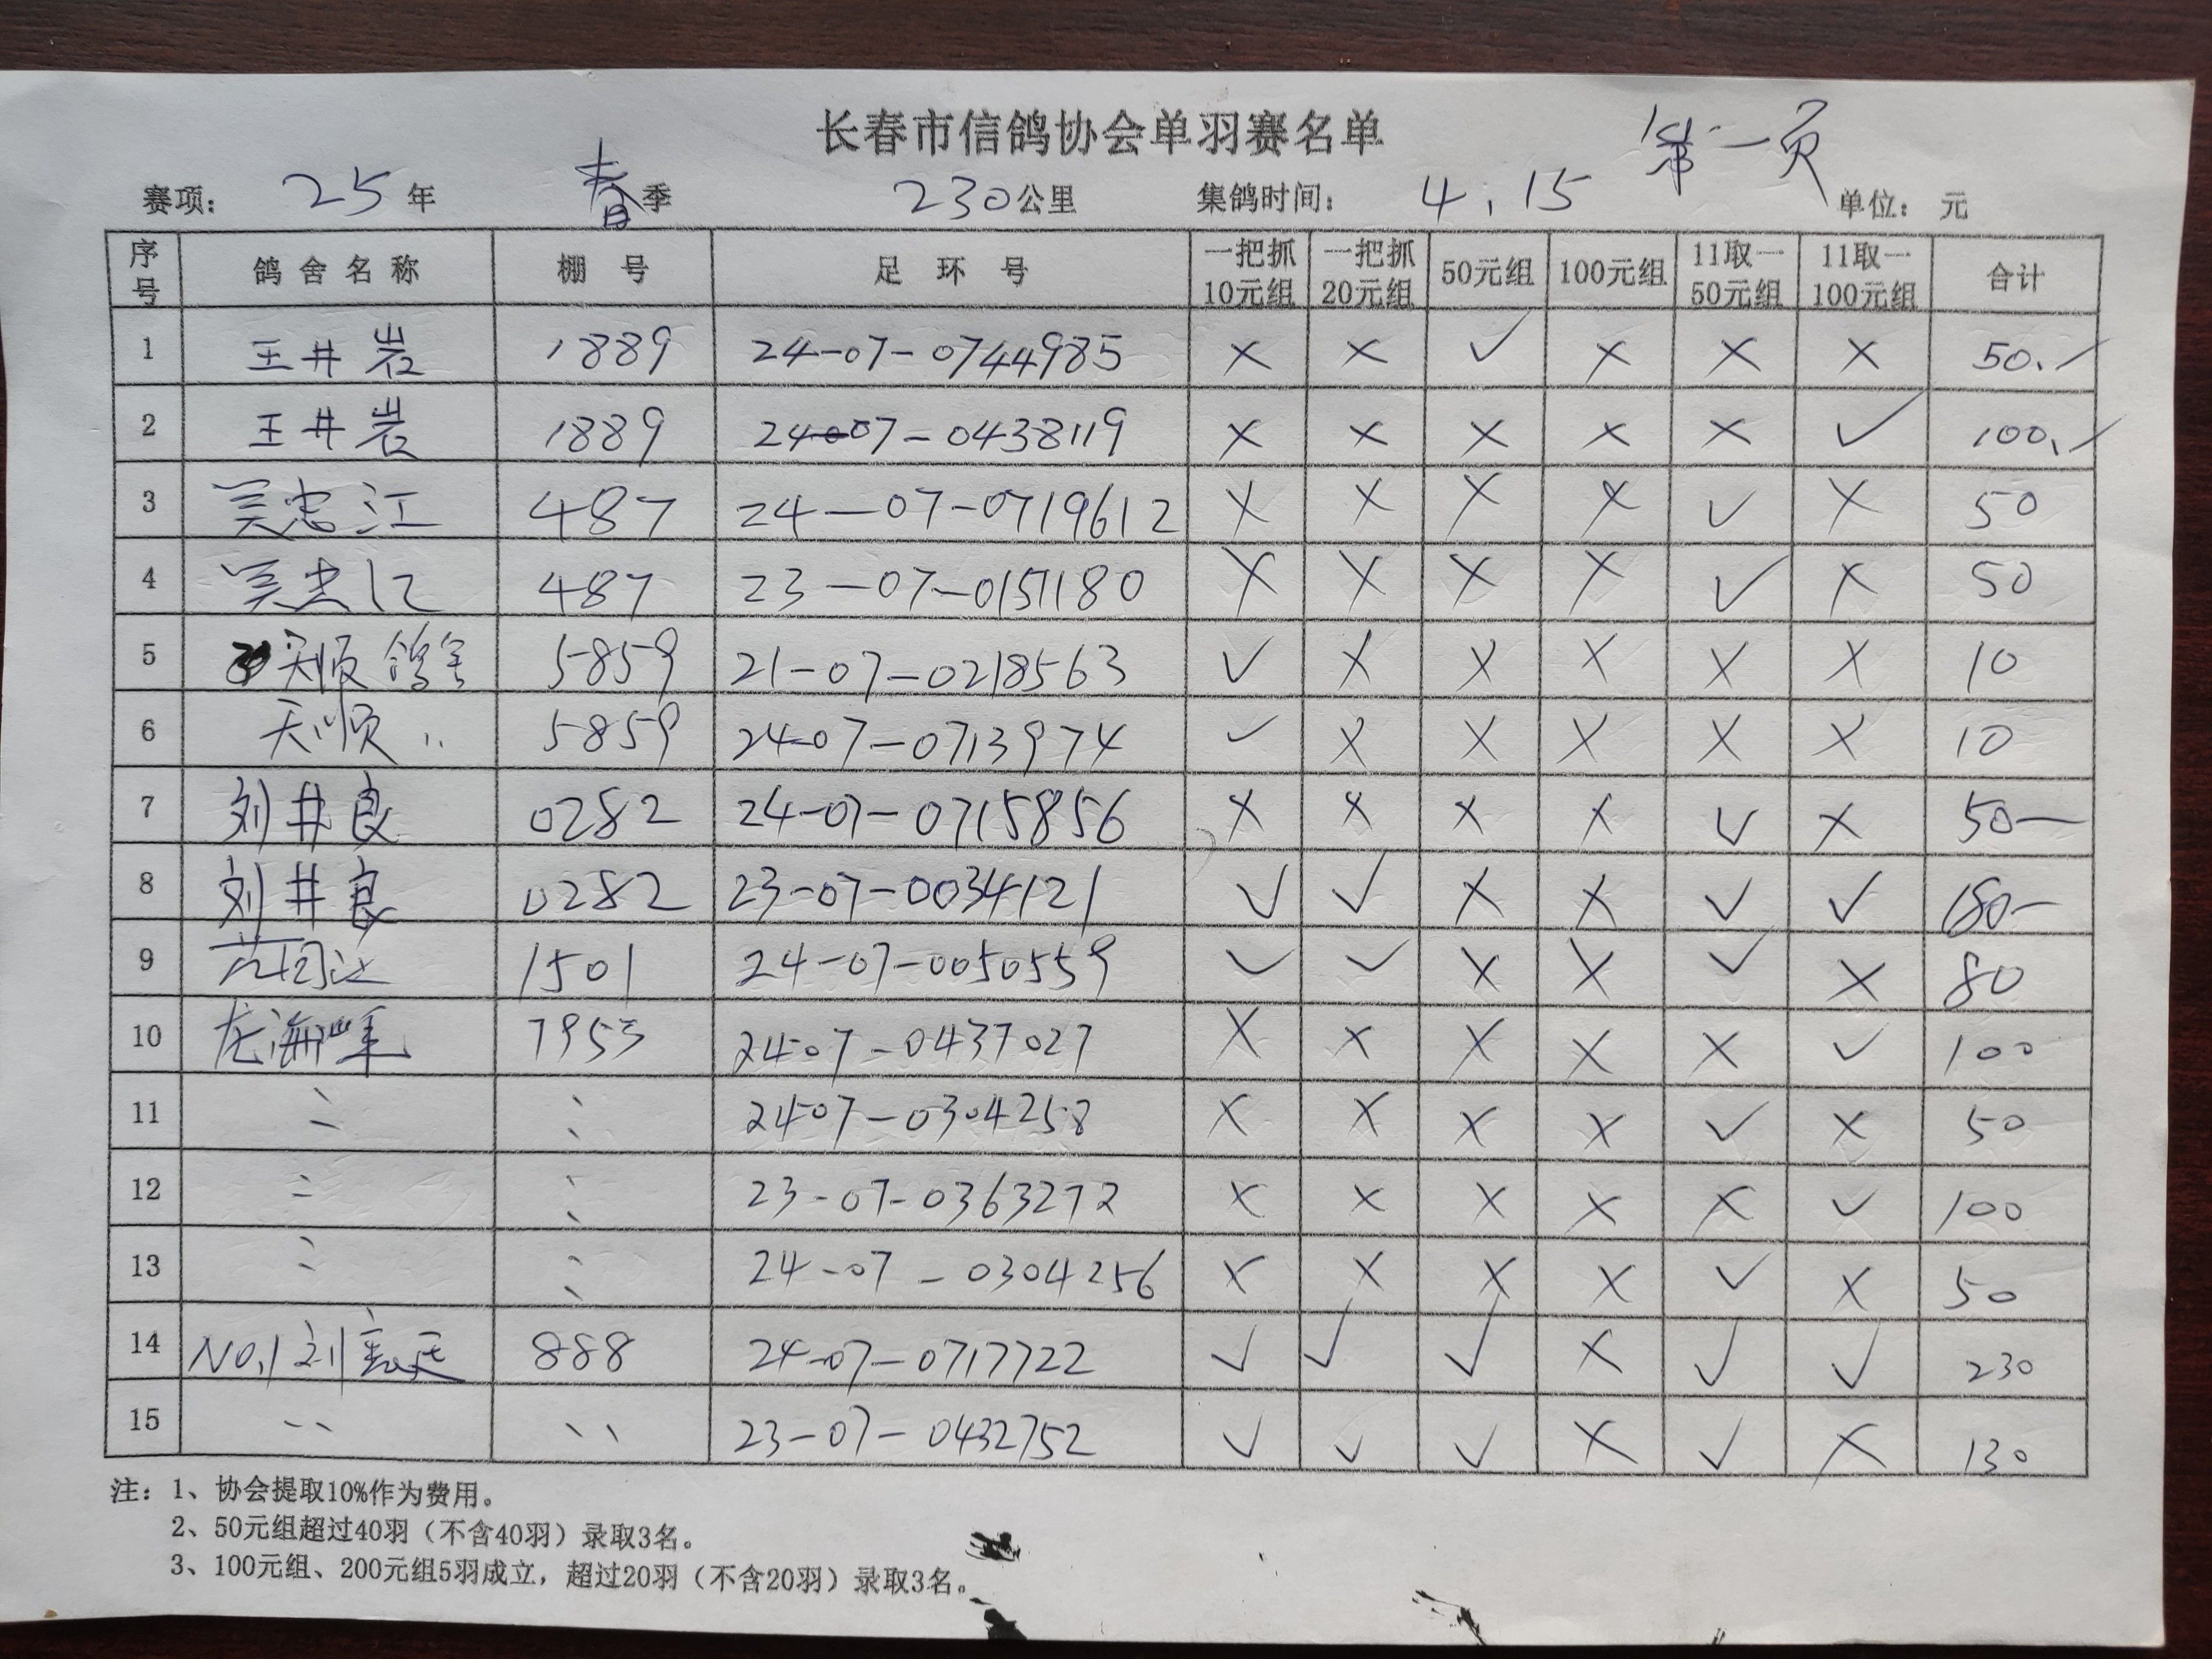 长春市信鸽协会单羽赛名单
第一页
赛项： 25 年 春 季 230 公里 集鸽时间： 4.15 单位： 元
序号 鸽舍名称 棚号 足环号 一把抓10元组 一把抓20元组 50元组 100元组 11取一50元组 11取一100元组 合计
1 王井岩 1889 24-07-0744985 × × ✓ × × × 50.
2 王井岩 1889 24-07-0438119 × × × × × ✓ 100.
3 吴忠江 487 24-07-0719612 × × × × ✓ × 50
4 吴忠江 487 23-07-0151180 × × × × ✓ × 50
5 天顺鸽舍 5859 21-07-0218563 ✓ × × × × × 10
6 天顺 〃 5859 24-07-0713974 ✓ × × × × × 10
7 刘井良 0282 24-07-0715856 × × × × ✓ × 50-
8 刘井良 0282 23-07-0034121 ✓ ✓ × × ✓ ✓ 180-
9 1501 24-07-0050559 ✓ ✓ × × ✓ × 80
10 海峰 7953 24-07-0437027 × × × × × ✓ 100
11 〃 〃 24-07-0304258 × × × × ✓ × 50
12 〃 〃 23-07-0363272 × × × × × ✓ 100
13 〃 〃 24-07-0304256 × × × × ✓ × 50
14 NO.1 刘 888 24-07-0717722 ✓ ✓ ✓ × ✓ ✓ 230
15 〃 〃 23-07-0432752 ✓ ✓ ✓ × ✓ × 130
注：1、协会提取10%作为费用。
2、50元组超过40羽（不含40羽）录取3名。
3、100元组、200元组5羽成立，超过20羽（不含20羽）录取3名。